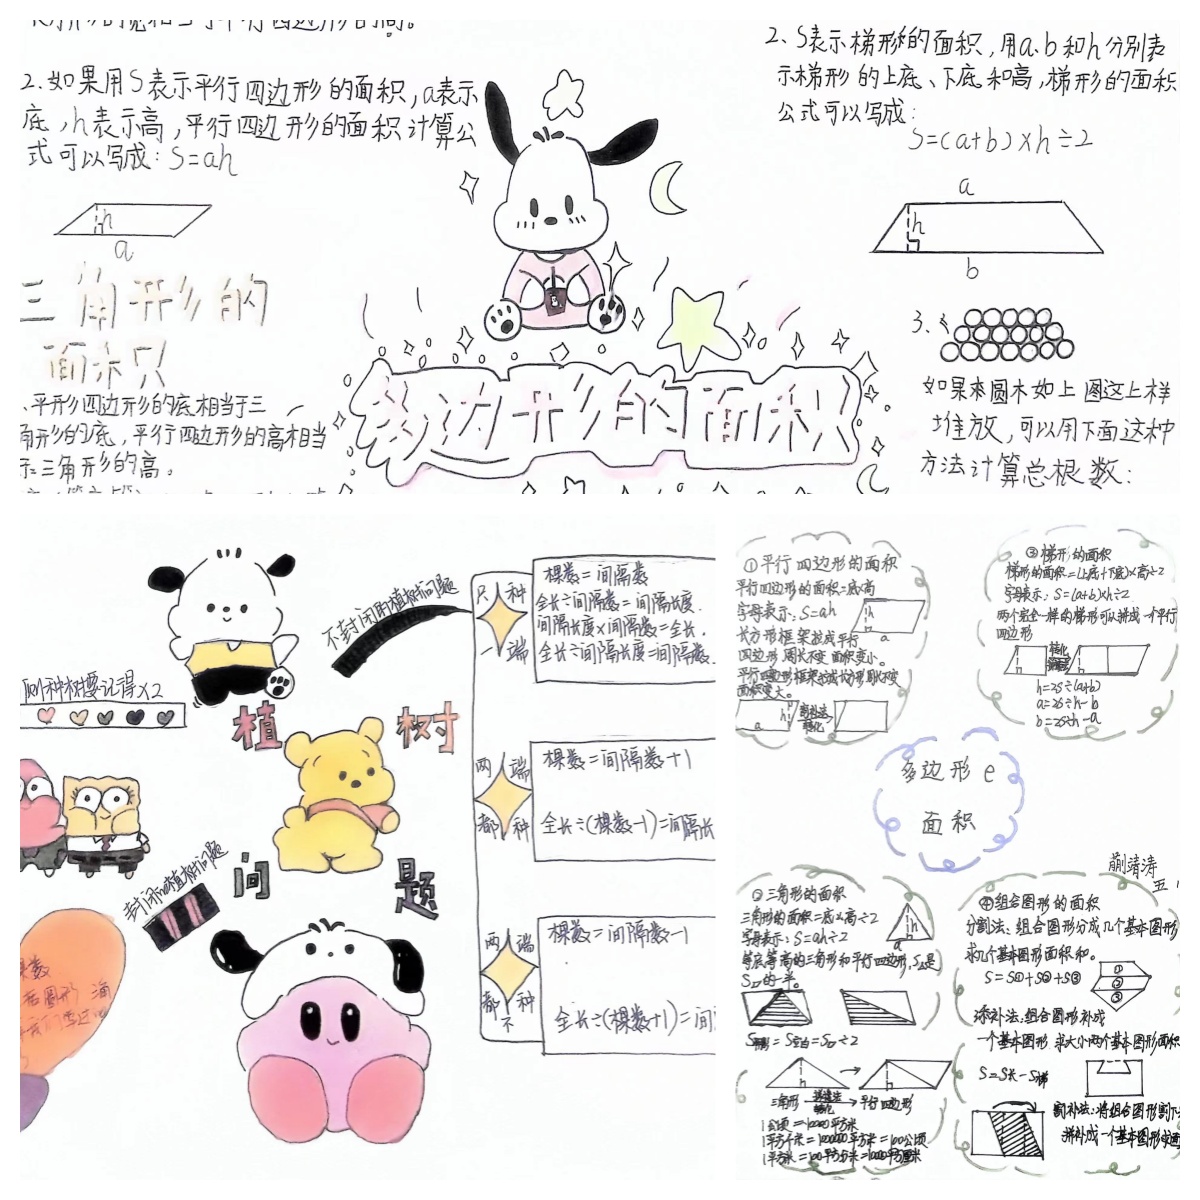 2.如果用S表示平行四边形的面积,a表示
底,h表示高,平行四边形的面积计算公
式可以写成:S=ah
h
a
三角形的
面积
、平形四边形的底相当于三
角形的底,平行四边形的高相当
于三角形的高。
多边形的面积
2、S表示梯形的面积,用a.b和h分别表
示梯形的上底、下底和高,梯形的面积
公式可以写成:
S=(a+b)×h÷2
a
h
b
3、
如果来圆木如上图这上样
堆放,可以用下面这种
方法计算总根数:
不封闭的植树问题
种树要记得×2
植树
问题
封闭的植树问题
只种
一端
棵数=间隔数
全长÷间隔数=间隔长度.
间隔长度×间隔数=全长.
全长÷间隔长度=间隔数.
两端
都种
棵数=间隔数+1
全长÷(棵数-1)=间隔长
两端
都不种
棵数=间隔数-1
全长÷(棵数+1)=间
棵数
①平行四边形的面积
平行四边形的面积=底×高
字母表示:S=ah
长方形框架拉成平行
四边形周长不变面积变小。
平行四边形框架拉成长方形周长不变
面积变大。
h
a
割补法
转化
③梯形的面积
梯形的面积=(上底+下底)×高÷2
字母表示:S=(a+b)×h÷2
两个完全一样的梯形可以拼成一个平行
四边形
转化
h=2S÷(a+b)
a=2S÷h-b
b=2S÷h-a
多边形e
面积
靖涛
五
②三角形的面积
三角形的面积=底×高÷2
字母表示:S=ah÷2
等底等高的三角形和平行四边形,S△是
S▱的一半。
h
a
三角形
转化
平行四边形
1公顷=10000平方米
1平方千米=1000000平方米=100公顷
④组合图形的面积
分割法:组合图形分成几个基本图形
求几个基本图形面积和。
S=S①+S②+S③
①
②
③
添补法:组合图形补成
一个基本图形 求大小两个基本图形面积
S=S长-S梯
割补法:将组合图形割下
拼补成一个基本图形